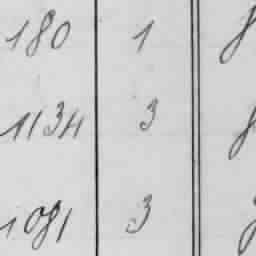 180 1
1134 3
1081 3